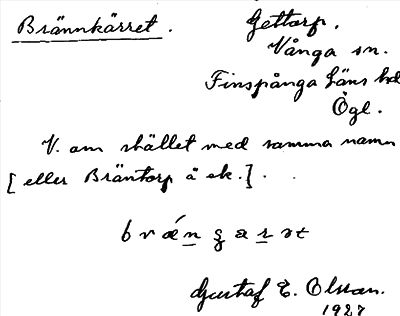 Brännkärret.
Gettorp.
Vånga sn.
Finspånga läns hd
Ögl.
V. om stället med samma namn
[eller Bräntorp å ek.].
Gustaf E. Olsson.
1927